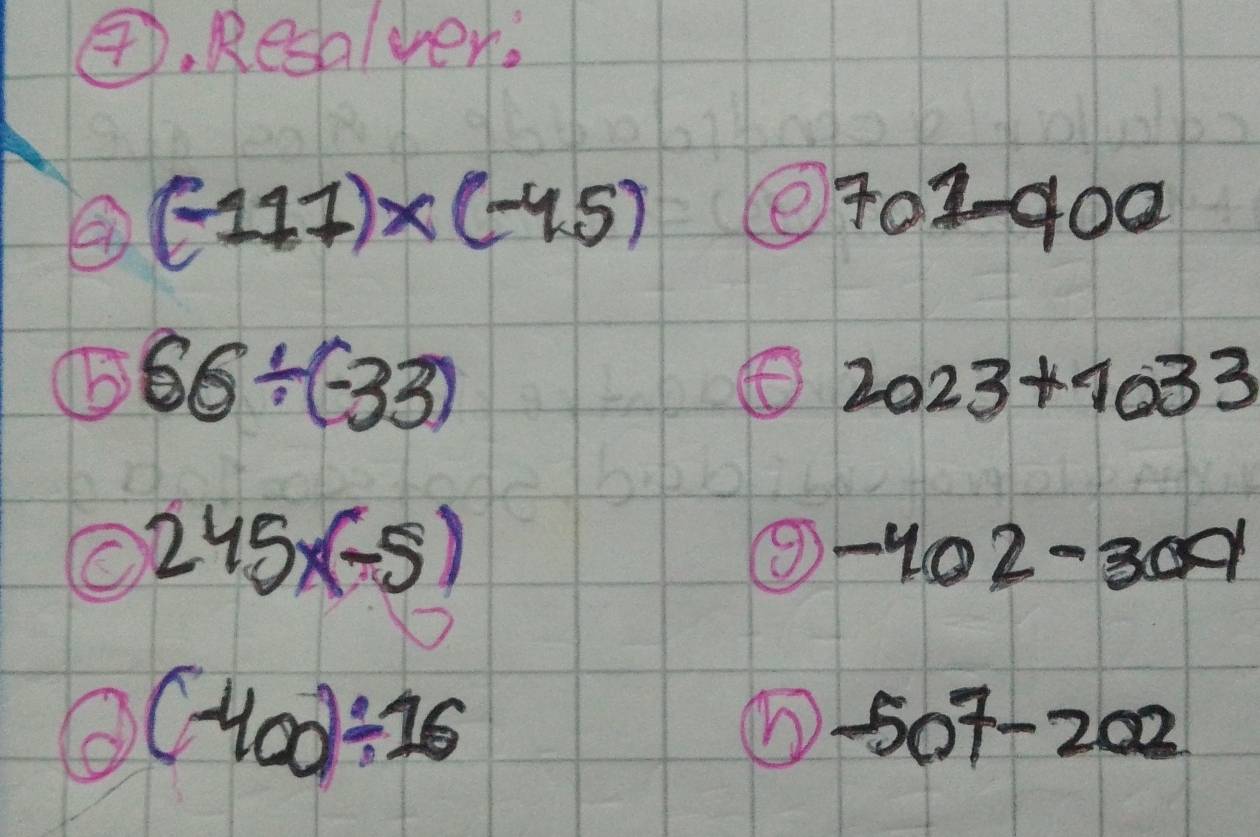 7. Resolver:
a (-111)×(-45) e 701-900
b 66÷(-33) f 2023+1033
c 245×(-5) g -402-309
d (-400)÷16 h -507-202